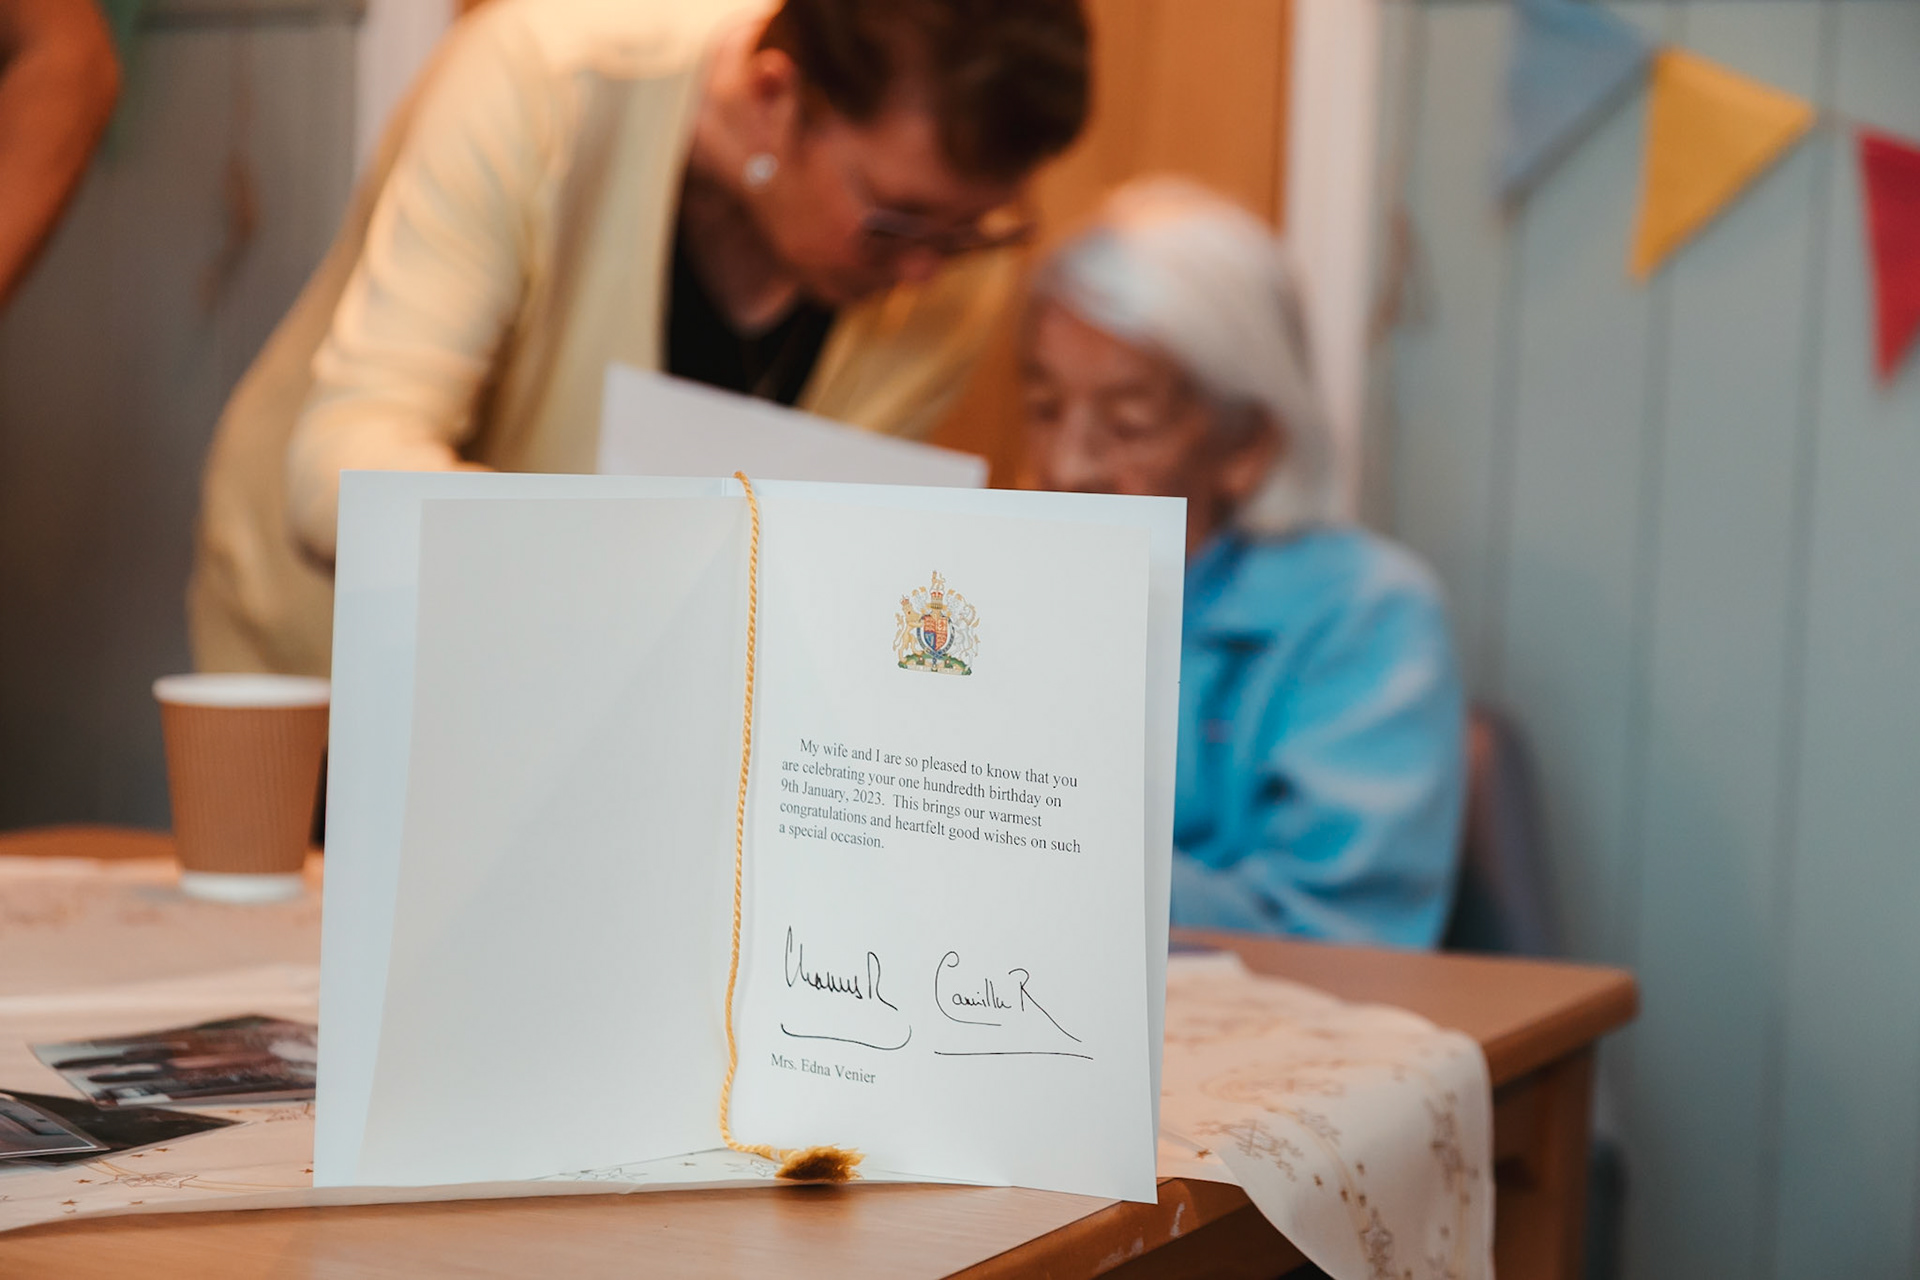 My wife and I are so pleased to know that you
are celebrating your one hundredth birthday on
9th January, 2023. This brings our warmest
congratulations and heartfelt good wishes on such
a special occasion.
Charles R Camilla R
Mrs. Edna Venier